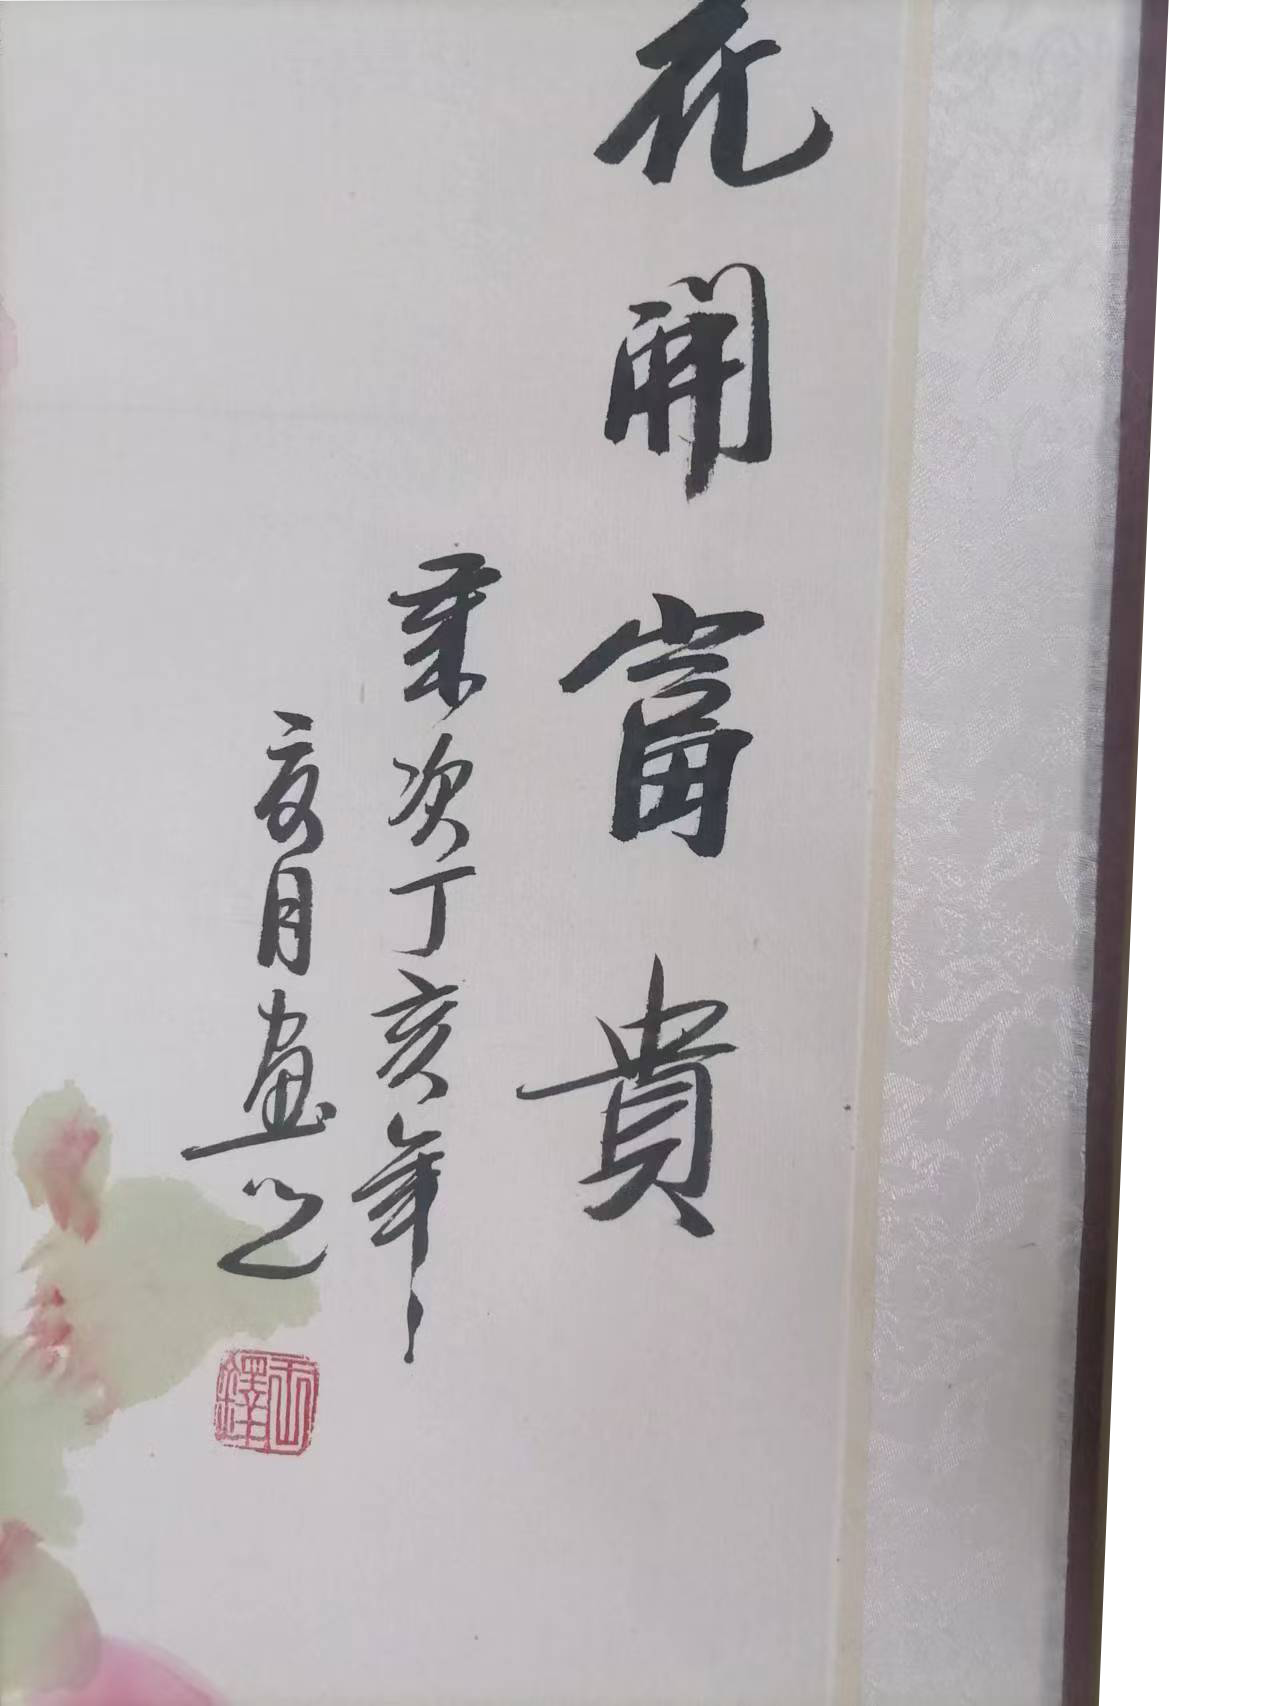 花開富貴
葉次丁亥年
夏月畫之